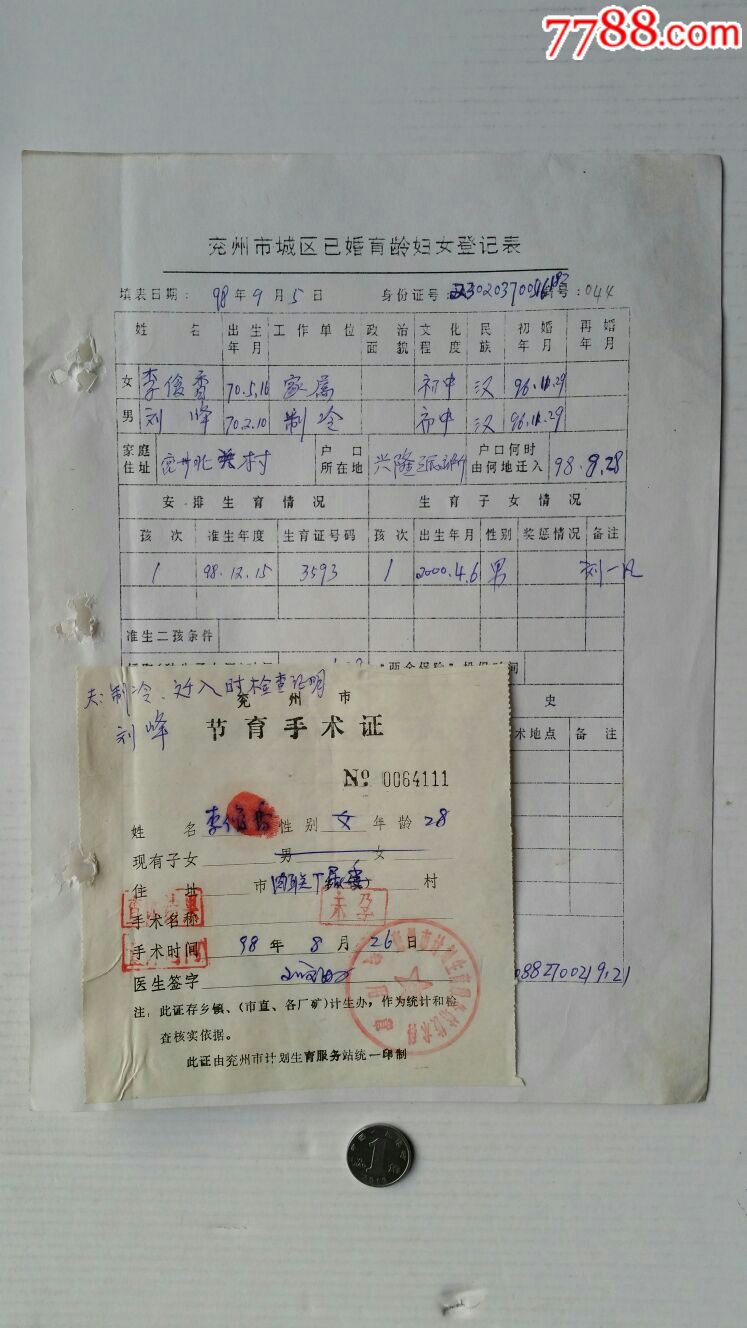 7788.com
兖州市城区已婚育龄妇女登记表
填表日期：98年9月5日 身份证号： 号：044
姓名 出生年月 工作单位 政治面貌 文化程度 民族 初婚年月 再婚年月
女 李俊香 70.5.16 家属 初中 汉 96.11.29
男 刘峰 70.2.10 制冷 初中 汉 96.11.29
家庭住址 村 户口所在地 兴隆 户口何时由何地迁入 98.9.28
安排生育情况 生育子女情况
孩次 准生年度 生育证号码 孩次 出生年月 性别 奖惩情况 备注
1 98.12.15 3593 1 2000.4.6 男 刘一凡
准生二孩条件
"两全保险"投保时间
史
术地点 备注
夫：制冷、迁入时检查证明
刘峰
兖州市
节育手术证
No 0064111
姓名 李俊香 性别 女 年龄 28
现有子女 男 女
住址 市 村
手术名称 未孕
手术时间 98年8月26日
医生签字
注：此证存乡镇、(市直、各厂矿)计生办，作为统计和检
查核实依据。
此证由兖州市计划生育服务站统一印制
0882700219.21